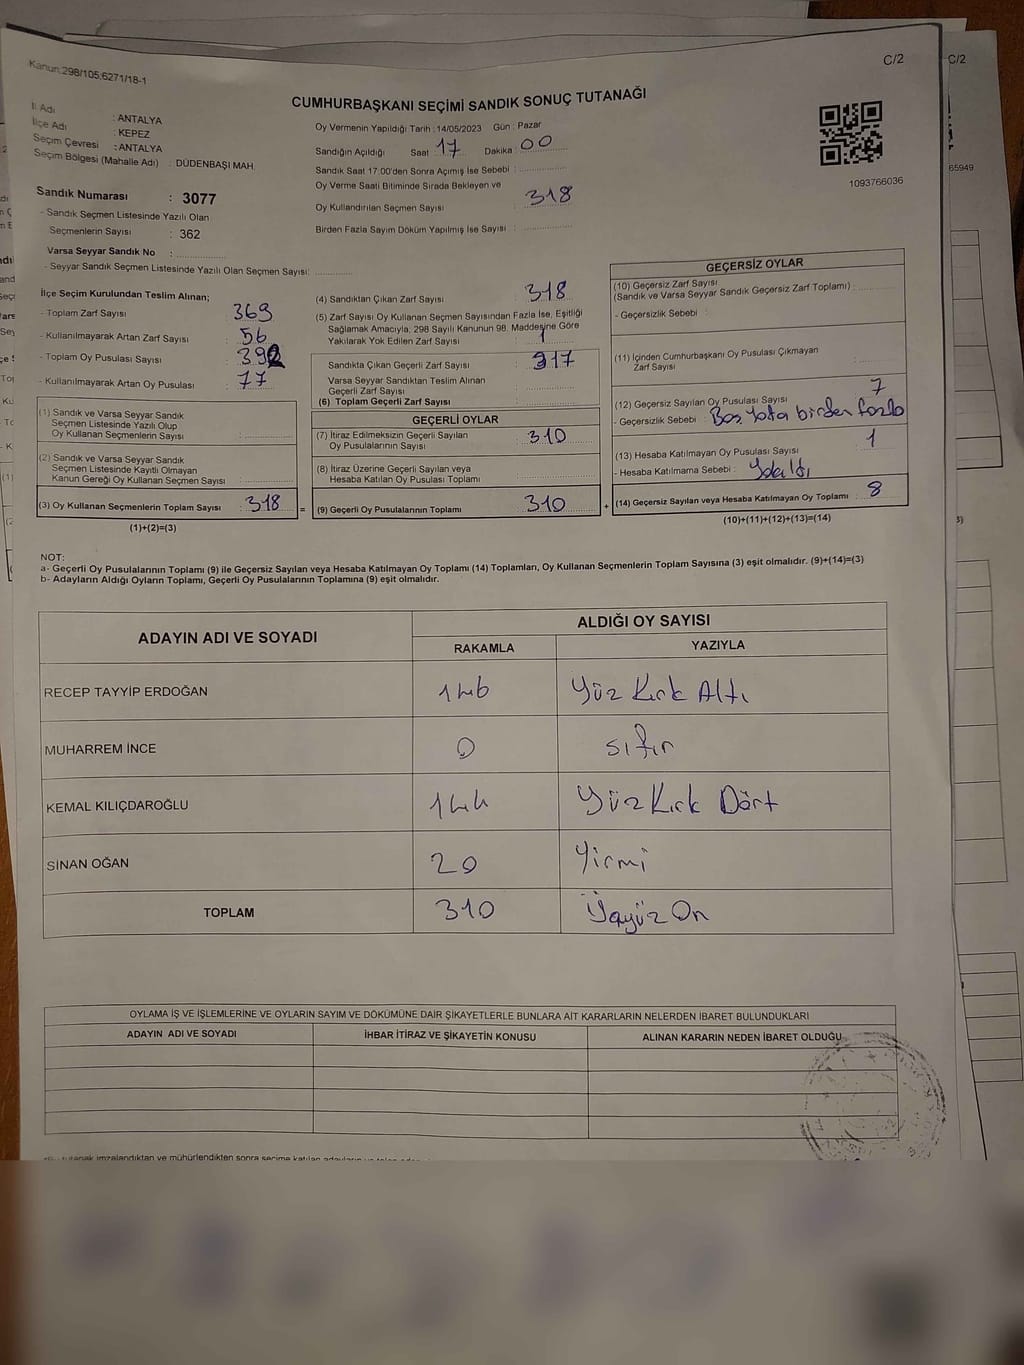 Kanun:298/105;6271/18-1
C/2
C/2
CUMHURBAŞKANI SEÇİMİ SANDIK SONUÇ TUTANAĞI
İl Adı : ANTALYA
İlçe Adı : KEPEZ
Seçim Çevresi : ANTALYA
Seçim Bölgesi (Mahalle Adı) : DÜDENBAŞI MAH.
Oy Vermenin Yapıldığı Tarih : 14/05/2023 Gün : Pazar
Sandığın Açıldığı Saat 17 Dakika 00
Sandık Saat 17.00'den Sonra Açımış İse Sebebi :
Oy Verme Saati Bitiminde Sırada Bekleyen ve
Oy Kullandırılan Seçmen Sayısı : 318
Birden Fazla Sayım Döküm Yapılmış İse Sayısı :
1093766036
65949
Sandık Numarası : 3077
- Sandık Seçmen Listesinde Yazılı Olan
Seçmenlerin Sayısı : 362
Varsa Seyyar Sandık No :
- Seyyar Sandık Seçmen Listesinde Yazılı Olan Seçmen Sayısı:
İlçe Seçim Kurulundan Teslim Alınan;
- Toplam Zarf Sayısı : 369
- Kullanılmayarak Artan Zarf Sayısı : 56
- Toplam Oy Pusulası Sayısı : 392
- Kullanılmayarak Artan Oy Pusulası : 77
(1) Sandık ve Varsa Seyyar Sandık
Seçmen Listesinde Yazılı Olup
Oy Kullanan Seçmenlerin Sayısı :
(2) Sandık ve Varsa Seyyar Sandık
Seçmen Listesinde Kayıtlı Olmayan
Kanun Gereği Oy Kullanan Seçmen Sayısı :
(3) Oy Kullanan Seçmenlerin Toplam Sayısı : 318
(1)+(2)=(3)
=
(4) Sandıktan Çıkan Zarf Sayısı : 318
(5) Zarf Sayısı Oy Kullanan Seçmen Sayısından Fazla İse, Eşitliği
Sağlamak Amacıyla; 298 Sayılı Kanunun 98. Maddesine Göre
Yakılarak Yok Edilen Zarf Sayısı : 1
Sandıkta Çıkan Geçerli Zarf Sayısı : 317
Varsa Seyyar Sandıktan Teslim Alınan
Geçerli Zarf Sayısı
(6) Toplam Geçerli Zarf Sayısı :
GEÇERLİ OYLAR
(7) İtiraz Edilmeksizin Geçerli Sayılan
Oy Pusulalarının Sayısı : 310
(8) İtiraz Üzerine Geçerli Sayılan veya
Hesaba Katılan Oy Pusulası Toplamı
(9) Geçerli Oy Pusulalarının Toplamı : 310
+
GEÇERSİZ OYLAR
(10) Geçersiz Zarf Sayısı
(Sandık ve Varsa Seyyar Sandık Geçersiz Zarf Toplamı) :
- Geçersizlik Sebebi :
(11) İçinden Cumhurbaşkanı Oy Pusulası Çıkmayan
Zarf Sayısı :
(12) Geçersiz Sayılan Oy Pusulası Sayısı : 7
- Geçersizlik Sebebi : Boş, birden fazla
(13) Hesaba Katılmayan Oy Pusulası Sayısı : 1
- Hesaba Katılmama Sebebi :
(14) Geçersiz Sayılan veya Hesaba Katılmayan Oy Toplamı : 8
(10)+(11)+(12)+(13)=(14)
NOT:
a- Geçerli Oy Pusulalarının Toplamı (9) ile Geçersiz Sayılan veya Hesaba Katılmayan Oy Toplamı (14) Toplamları, Oy Kullanan Seçmenlerin Toplam Sayısına (3) eşit olmalıdır. (9)+(14)=(3)
b- Adayların Aldığı Oyların Toplamı, Geçerli Oy Pusulalarının Toplamına (9) eşit olmalıdır.
ADAYIN ADI VE SOYADI
ALDIĞI OY SAYISI
RAKAMLA YAZIYLA
RECEP TAYYİP ERDOĞAN 146 Yüz Kırk Altı
MUHARREM İNCE 0 sıfır
KEMAL KILIÇDAROĞLU 144 Yüz Kırk Dört
SİNAN OĞAN 20 Yirmi
TOPLAM 310 Üçyüz On
OYLAMA İŞ VE İŞLEMLERİNE VE OYLARIN SAYIM VE DÖKÜMÜNE DAİR ŞİKAYETLERLE BUNLARA AİT KARARLARIN NELERDEN İBARET BULUNDUKLARI
ADAYIN ADI VE SOYADI İHBAR İTİRAZ VE ŞİKAYETİN KONUSU ALINAN KARARIN NEDEN İBARET OLDUĞU
tutanak imzalandıktan ve mühürlendikten sonra seçime katılan